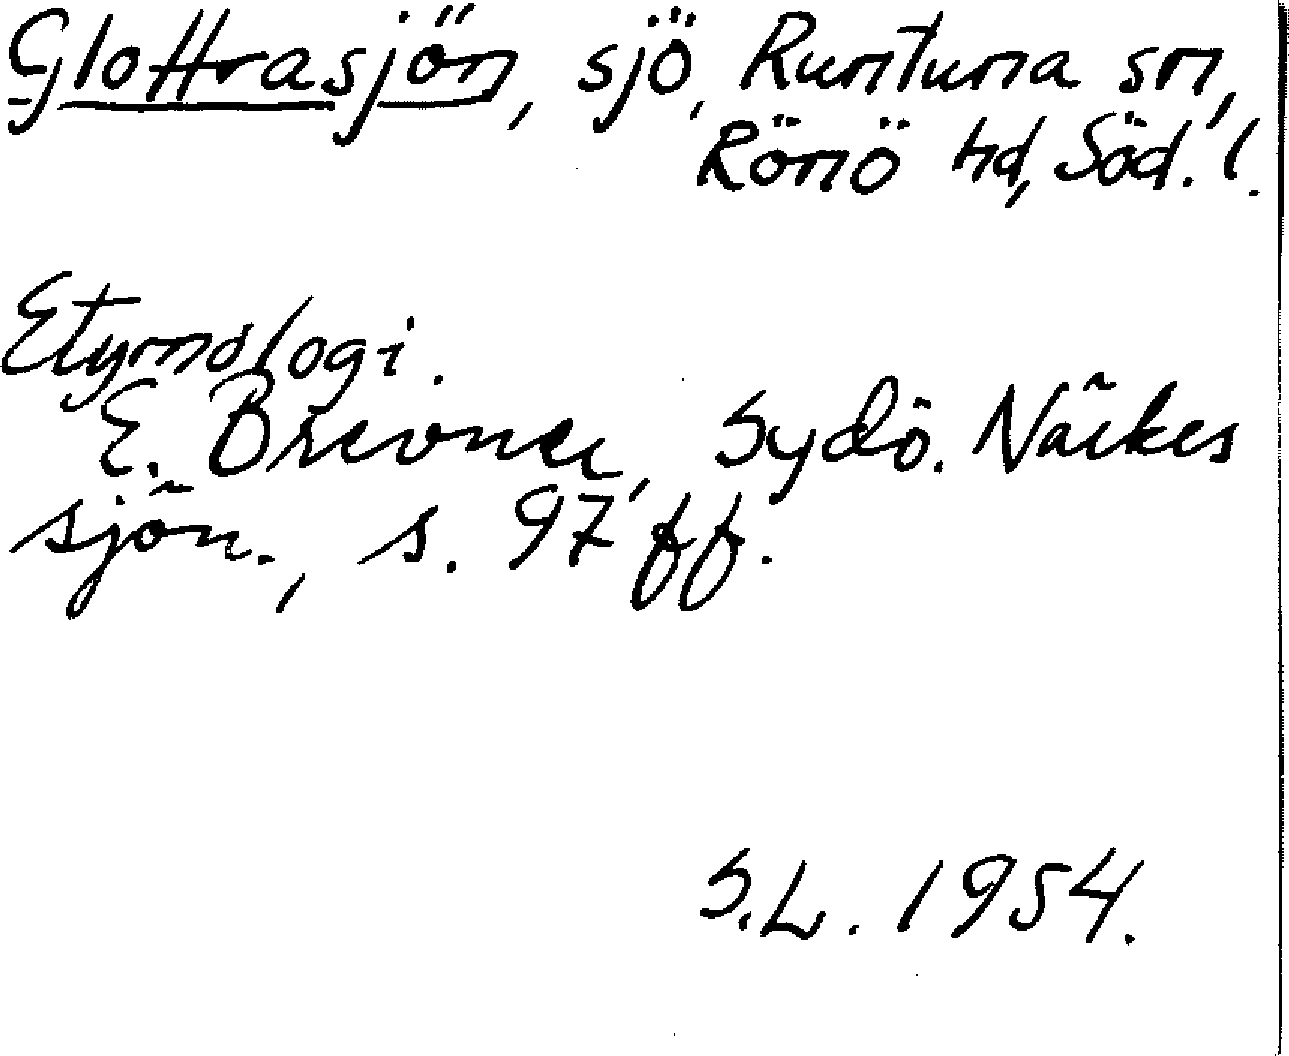 Glottrasjön, sjö, Runtuna sn,
Rönö hd, Söd. l.
Etymologi.
E. Brevner, Sydö. Närkes
sjön., s. 97 ff.
S.L. 1954.